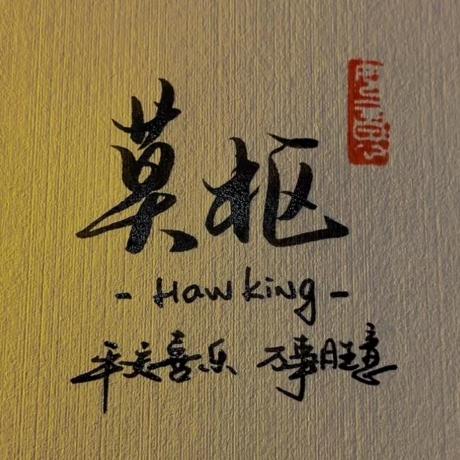 莫枢
- Hawking -
平安喜乐 万事胜意